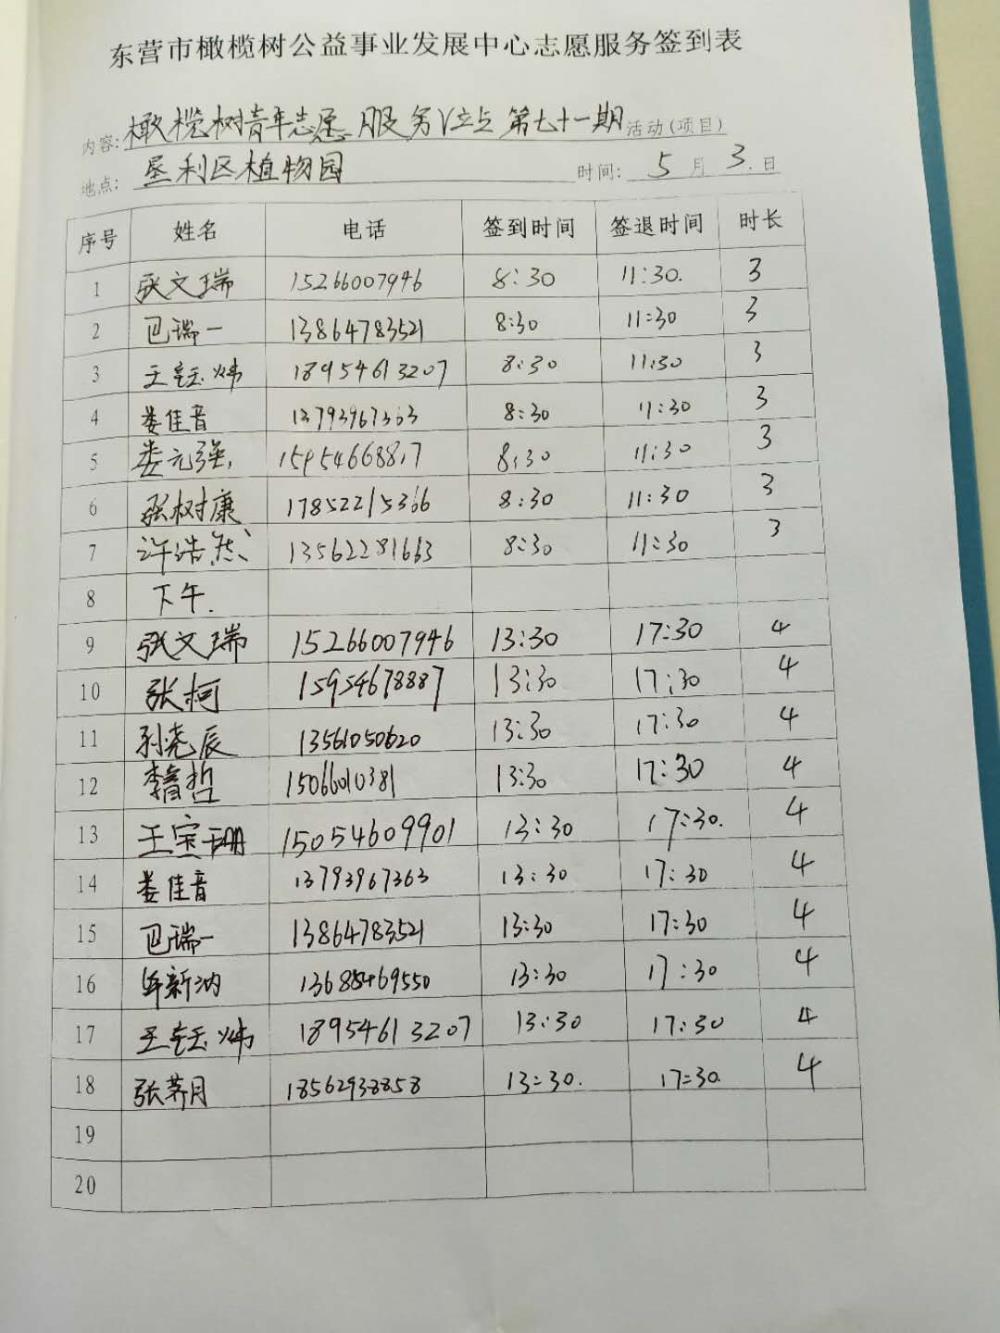 东营市橄榄树公益事业发展中心志愿服务签到表
内容:橄榄树青年志愿服务站点第七十一期活动(项目)
地点:垦利区植物园 时间:5月3.日
序号 姓名 电话 签到时间 签退时间 时长
1 张文瑞 15266007946 8:30 11:30. 3
2 巴瑞一 13864783521 8:30 11:30 3
3 王钰炜 18954613207 8:30 11:30 3
4 娄佳音 13793967363 8:30 11:30 3
5 娄元强 8:30 11:30 3
6 张树康 17852215366 8:30 11:30 3
7 许浩然 13562281663 8:30 11:30 3
8 下午.
9 张文瑞 15266007946 13:30 17:30 4
10 张柯 15954678887 13:30 17:30 4
11 孙尧辰 13561050620 13:30 17:30 4
12 李睿哲 15066010381 13:30 17:30 4
13 王宝珊 15054609901 13:30 17:30. 4
14 娄佳音 13793967363 13:30 17:30 4
15 巴瑞一 13864783521 13:30 17:30 4
16 牟新汭 13685469550 13:30 17:30 4
17 王钰炜 18954613207 13:30 17:30 4
18 张荞月 18562938858 13:30. 17:30. 4
19
20